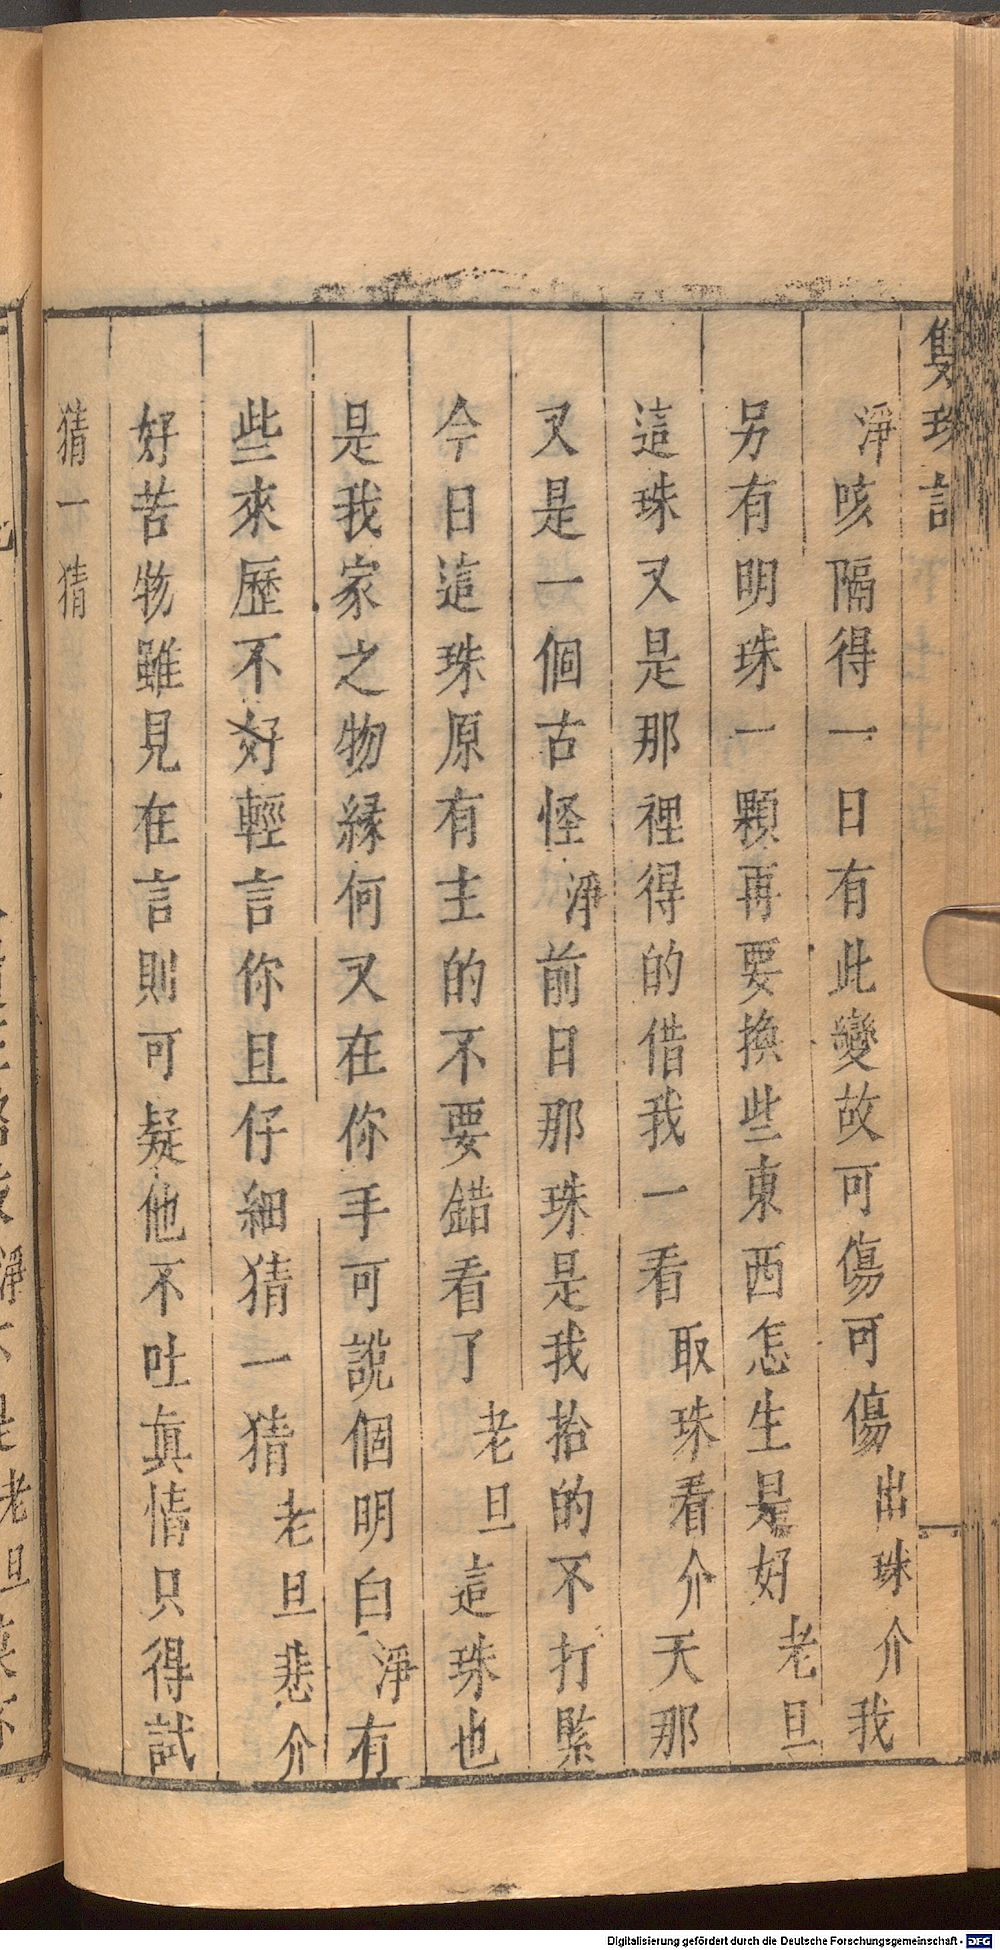 雙珠記
淨咳隔得一日有此變故可傷可傷出珠介我
另有明珠一顆再要換些東西怎生是好老旦
這珠又是那裡得的借我一看取珠看介天那
又是一個古怪淨前日那珠是我拾的不打緊
今日這珠原有主的不要錯看了老旦這珠也
是我家之物縁何又在你手可說個明白淨有
些來歷不好輕言你且仔細猜一猜老旦悲介
好苦物雖見在言則可疑他不吐真情只得試
猜一猜
Digitalisierung gefördert durch die Deutsche Forschungsgemeinschaft - DFG